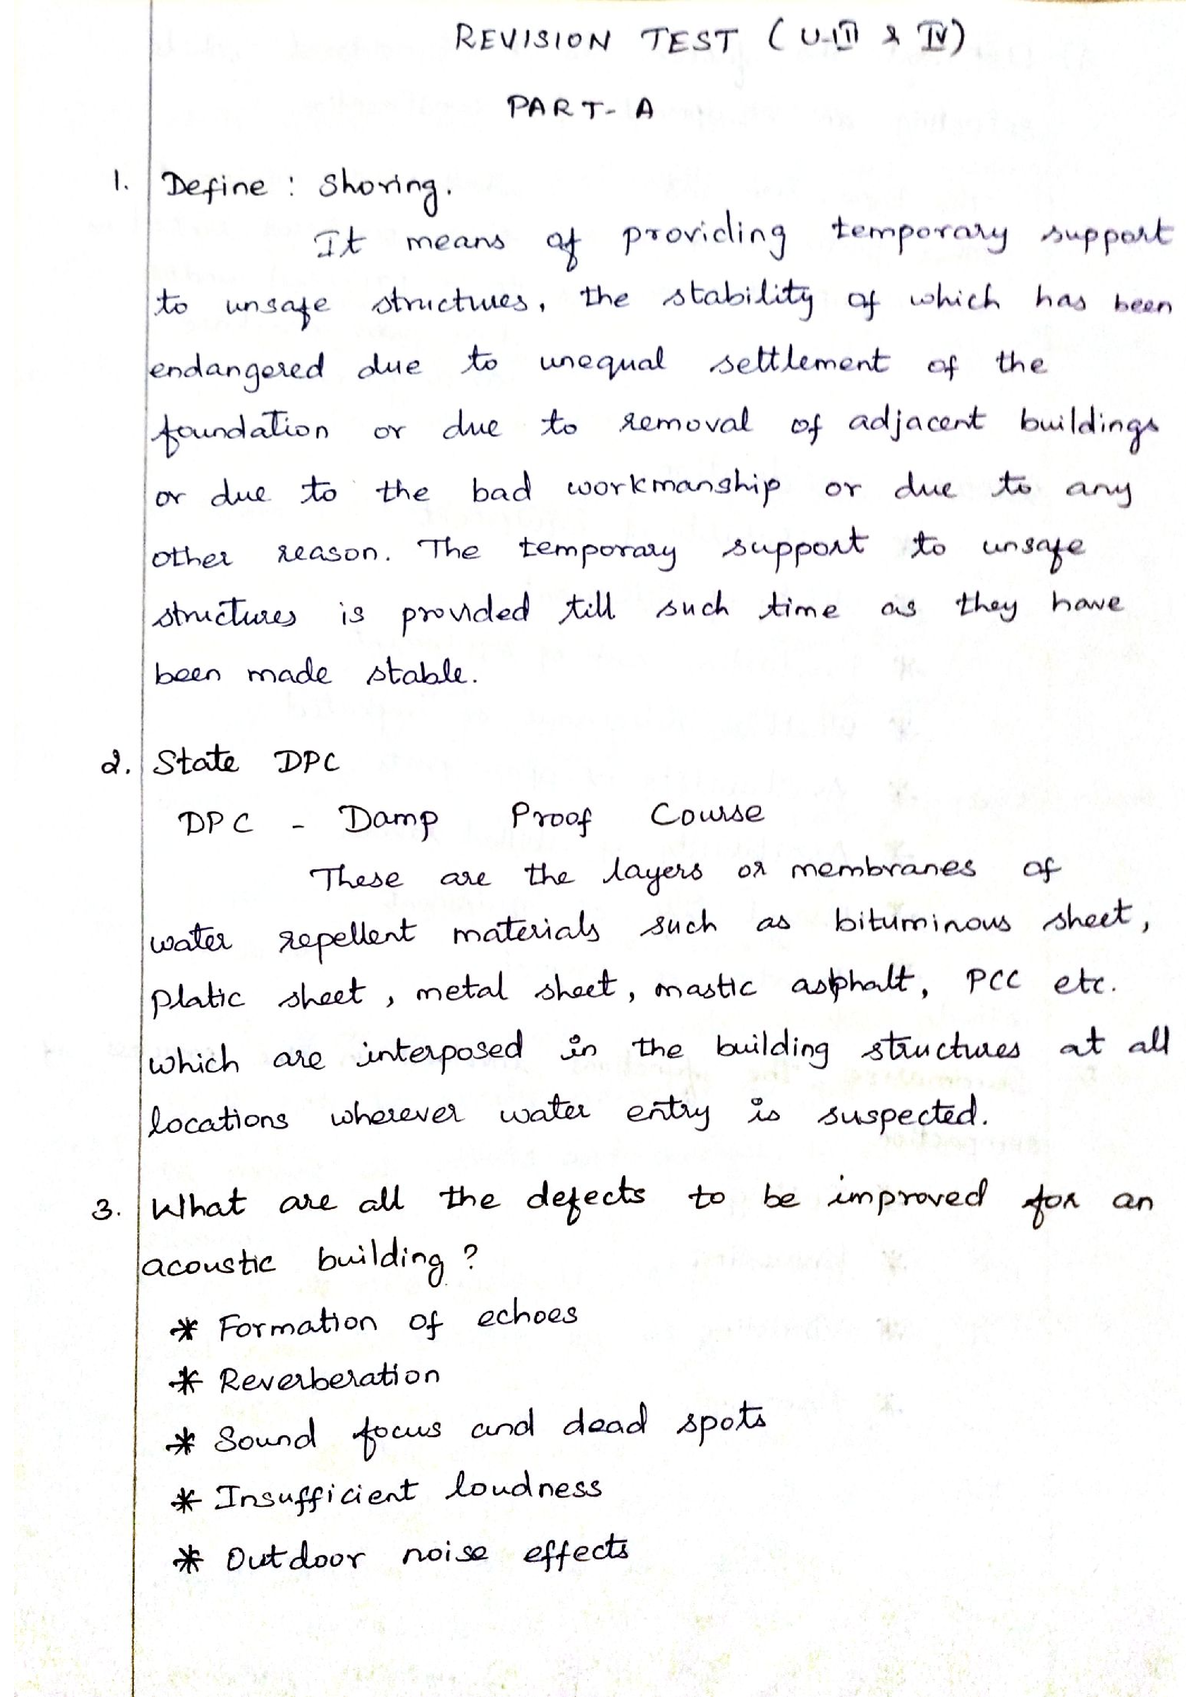 REVISION TEST (U-III & IV)
PART-A
1. Define : Shoring.
It means of providing temporary support
to unsafe structures, the stability of which has been
endangered due to unequal settlement of the
foundation or due to removal of adjacent buildings
or due to the bad workmanship or due to any
other reason. The temporary support to unsafe
structures is provided till such time as they have
been made stable.
2. State DPC
DPC - Damp Proof Course
These are the layers or membranes of
water repellent materials such as bituminous sheet,
platic sheet, metal sheet, mastic asphalt, PCC etc.
which are interposed in the building structures at all
locations wherever water entry is suspected.
3. What are all the defects to be improved for an
acoustic building ?
* Formation of echoes
* Reverberation
* Sound focus and dead spots
* Insufficient loudness
* Outdoor noise effects